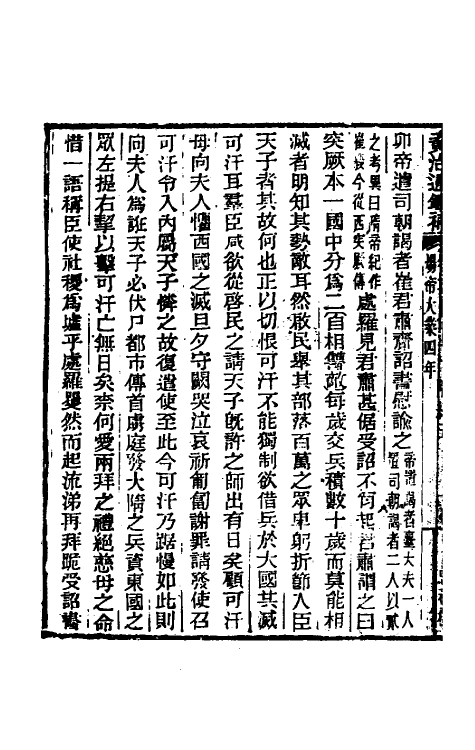 煬帝大業四年
卯帝遣司朝謁者崔君肅齎詔書慰諭之帝置謁者臺大夫一人置司朝謁者二人以貳
之考異曰隋帝紀作崔毅今從西突厥傳處羅見君肅甚倨受詔不肎起君肅謂之曰
突厥本一國中分爲二自相讎敵每歲交兵積數十歲而莫能相
滅者明知其勢敵耳然啟民舉其部落百萬之眾卑躬折節入臣
天子者其故何也正以切恨可汗不能獨制欲借兵於大國共滅
可汗耳羣臣咸欲從啓民之請天子旣許之師出有日矣顧可汗
母向夫人懼西國之滅旦夕守闕哭泣哀祈匍匐謝罪請發使召
可汗令入內屬天子憐之故復遣使至此今可汗乃踞慢如此則
向夫人爲誑天子必伏尸都市傳首虜庭發大隋之兵資東國之
眾左提右挈以擊可汗亡無日矣柰何愛兩拜之禮絕慈母之命
惜一語稱臣使社稷爲墟乎處羅矍然而起流涕再拜跪受詔書